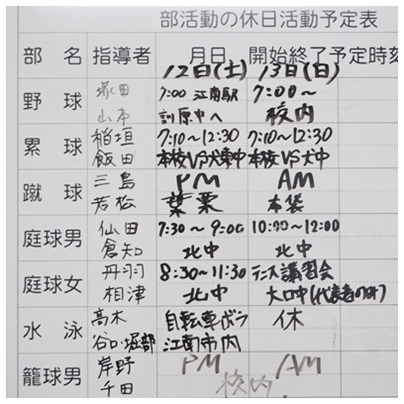 部活動の休日活動予定表
部名 指導者 月日 開始終了予定時刻
12日(土) 13日(日)
野球 塚田 7:00 江南駅 7:00〜
山本 訓原中へ 校内
塁球 稲垣 7:10〜12:30 7:10〜12:30
飯田 本校VS犬東中 本校VS犬中
蹴球 三島 PM AM
若松 葉栗 本袋
庭球男 仙田 7:30〜9:00 10:00〜12:00
倉知 北中 北中
庭球女 丹羽 8:30〜11:30 テニス講習会
相津 北中 大口中(代表者のみ)
水泳 高木 自転車ボラ 休
谷口・堀部 江南市内
籠球男 岸野 PM AM
千田 校内